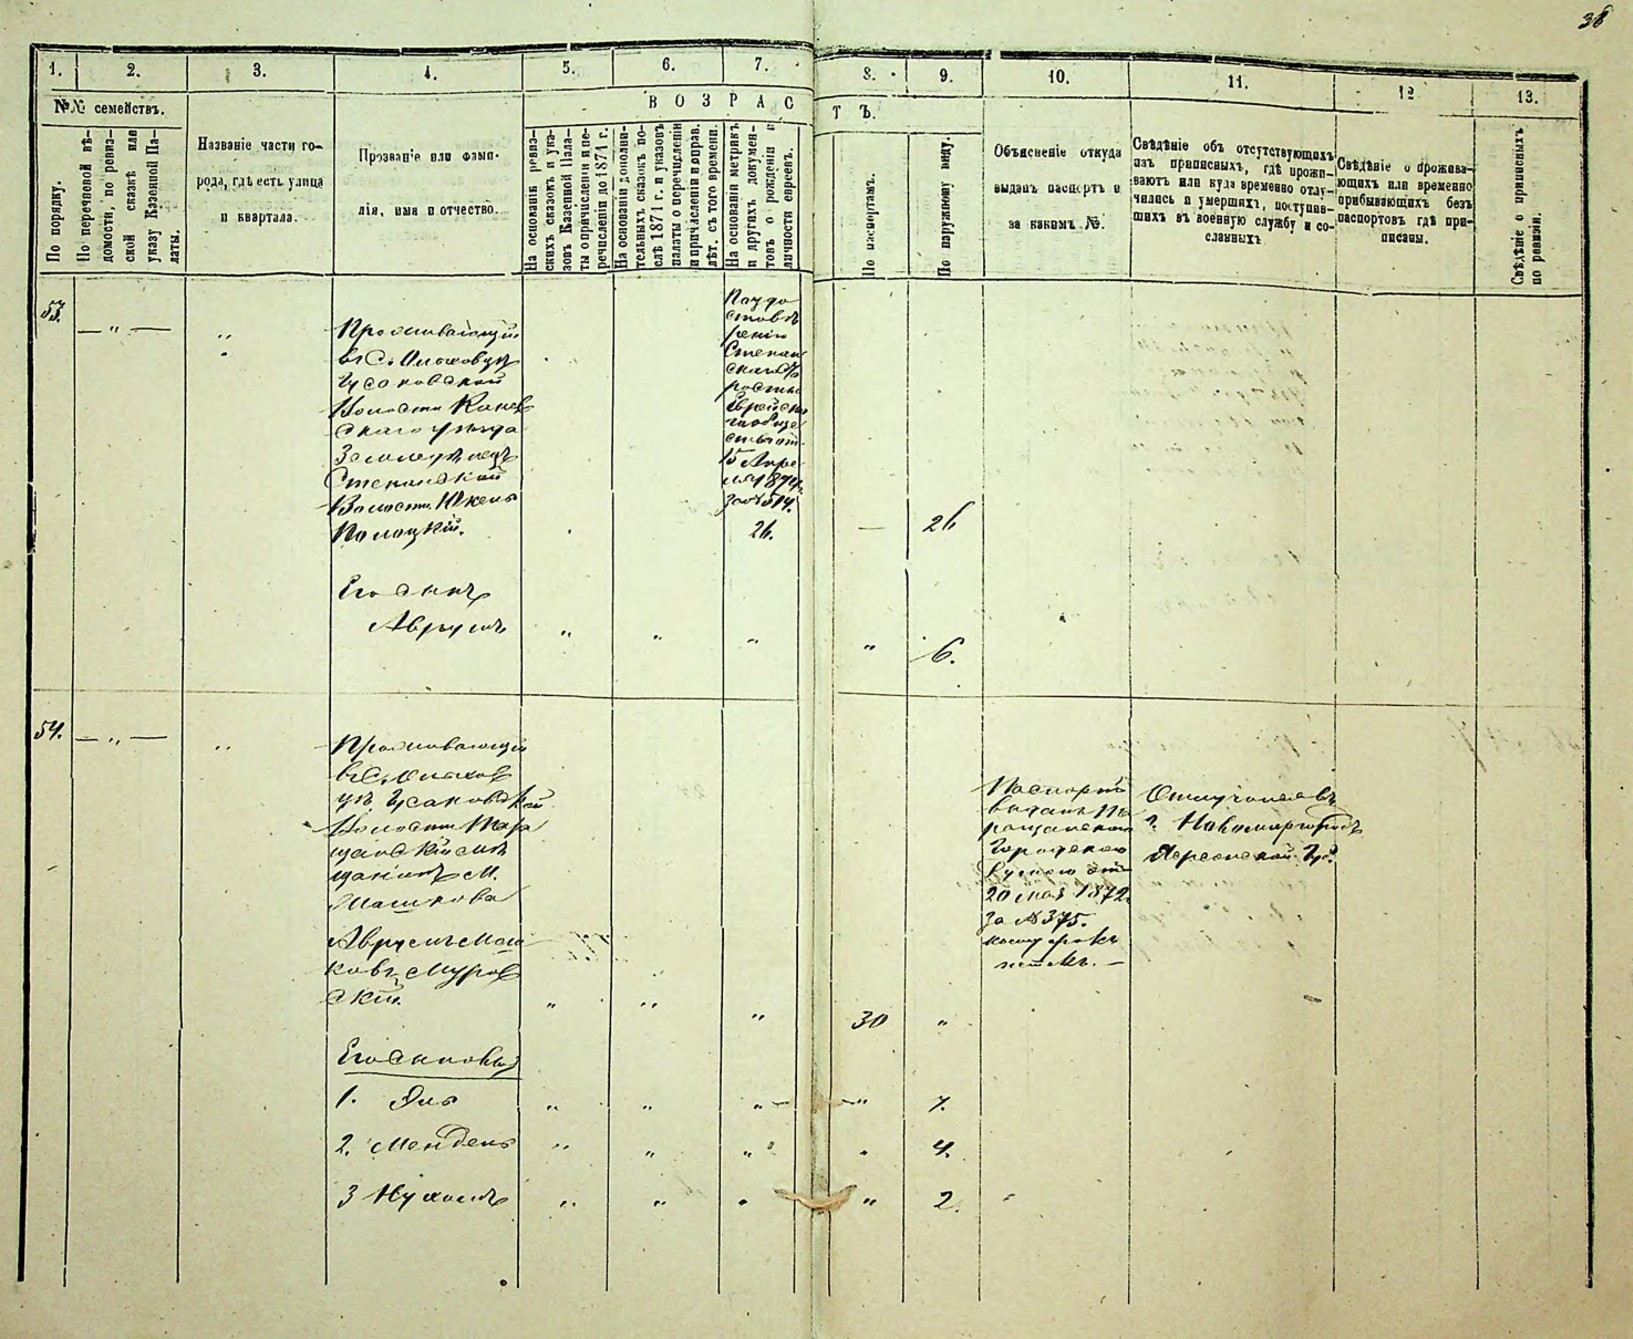 38
1.
2.
3.
4.
5.
6.
7.
8.
9.
10.
11.
12
13.
№№ семействъ.
ВОЗРАС
ТЪ.
По порядку.
По перечневой вѣ-
домости, по ревиз-
ской сказкѣ или
указу Казенной Па-
латы.
Названіе части го-
рода, гдѣ есть улица
и квартала.
Прозваніе или фами-
лія, имя и отчество.
На основаніи ревиз-
скихъ сказокъ и ука-
зовъ Казенной Пала-
ты о причисленіи и пе-
речисленіи по 1871 г.
На основаніи дополни-
тельныхъ сказокъ по-
слѣ 1871 г. и указовъ
палаты о перечисленіи
и причисленіи и прав.
лѣт. съ того времени.
На основаніи метрикъ
и другихъ докумен-
товъ о рожденіи и
личности евреевъ.
По паспортамъ.
По наружному виду.
Объясненіе откуда
выданъ паспортъ и
за какимъ №.
Свѣдѣніе объ отсутствующихъ
изъ приписныхъ, гдѣ прожи-
ваютъ или куда временно отлу-
чились и умершихъ, поступив-
шихъ въ военную службу и со-
сланныхъ
Свѣдѣніе о прожива-
ющихъ или временно
прибывающихъ безъ
паспортовъ гдѣ при-
писаны.
Свѣдѣніе о приписныхъ
по ревизіи.
53.
— " —
"
Проживающій
въ С. Ольховцѣ
Гусаковской
Волости Канев
скаго уѣзда
Земледѣлецъ
Степанской
Волости
Полоцкій.
По удо
стовѣ
ренію
Степан
скаго
росты
Еврейска
го обще
ства от
15 Апре
ля 1874.
за № 514.
26.
—
26
Его сынъ
Аврумъ
"
"
"
"
6.
54.
— " —
"
Проживающій
въ С. Ольхов
цѣ Гусаковской
Волости Тара
щанскій мѣ
щанинъ М.
Машковъ
Муров
скій.
"
"
"
30
"
Паспортъ
выданъ Та
ращанскою
Городскою
Думою отъ
20 мая 1872.
за № 375.
Отлучился въ
г. Новомиргородъ
Херсонской Гу.
Его сыновья
1. Эль
"
"
" —
— "
7.
2. Мендель
"
"
"
"
4.
3 Нухимъ
"
"
"
"
2.